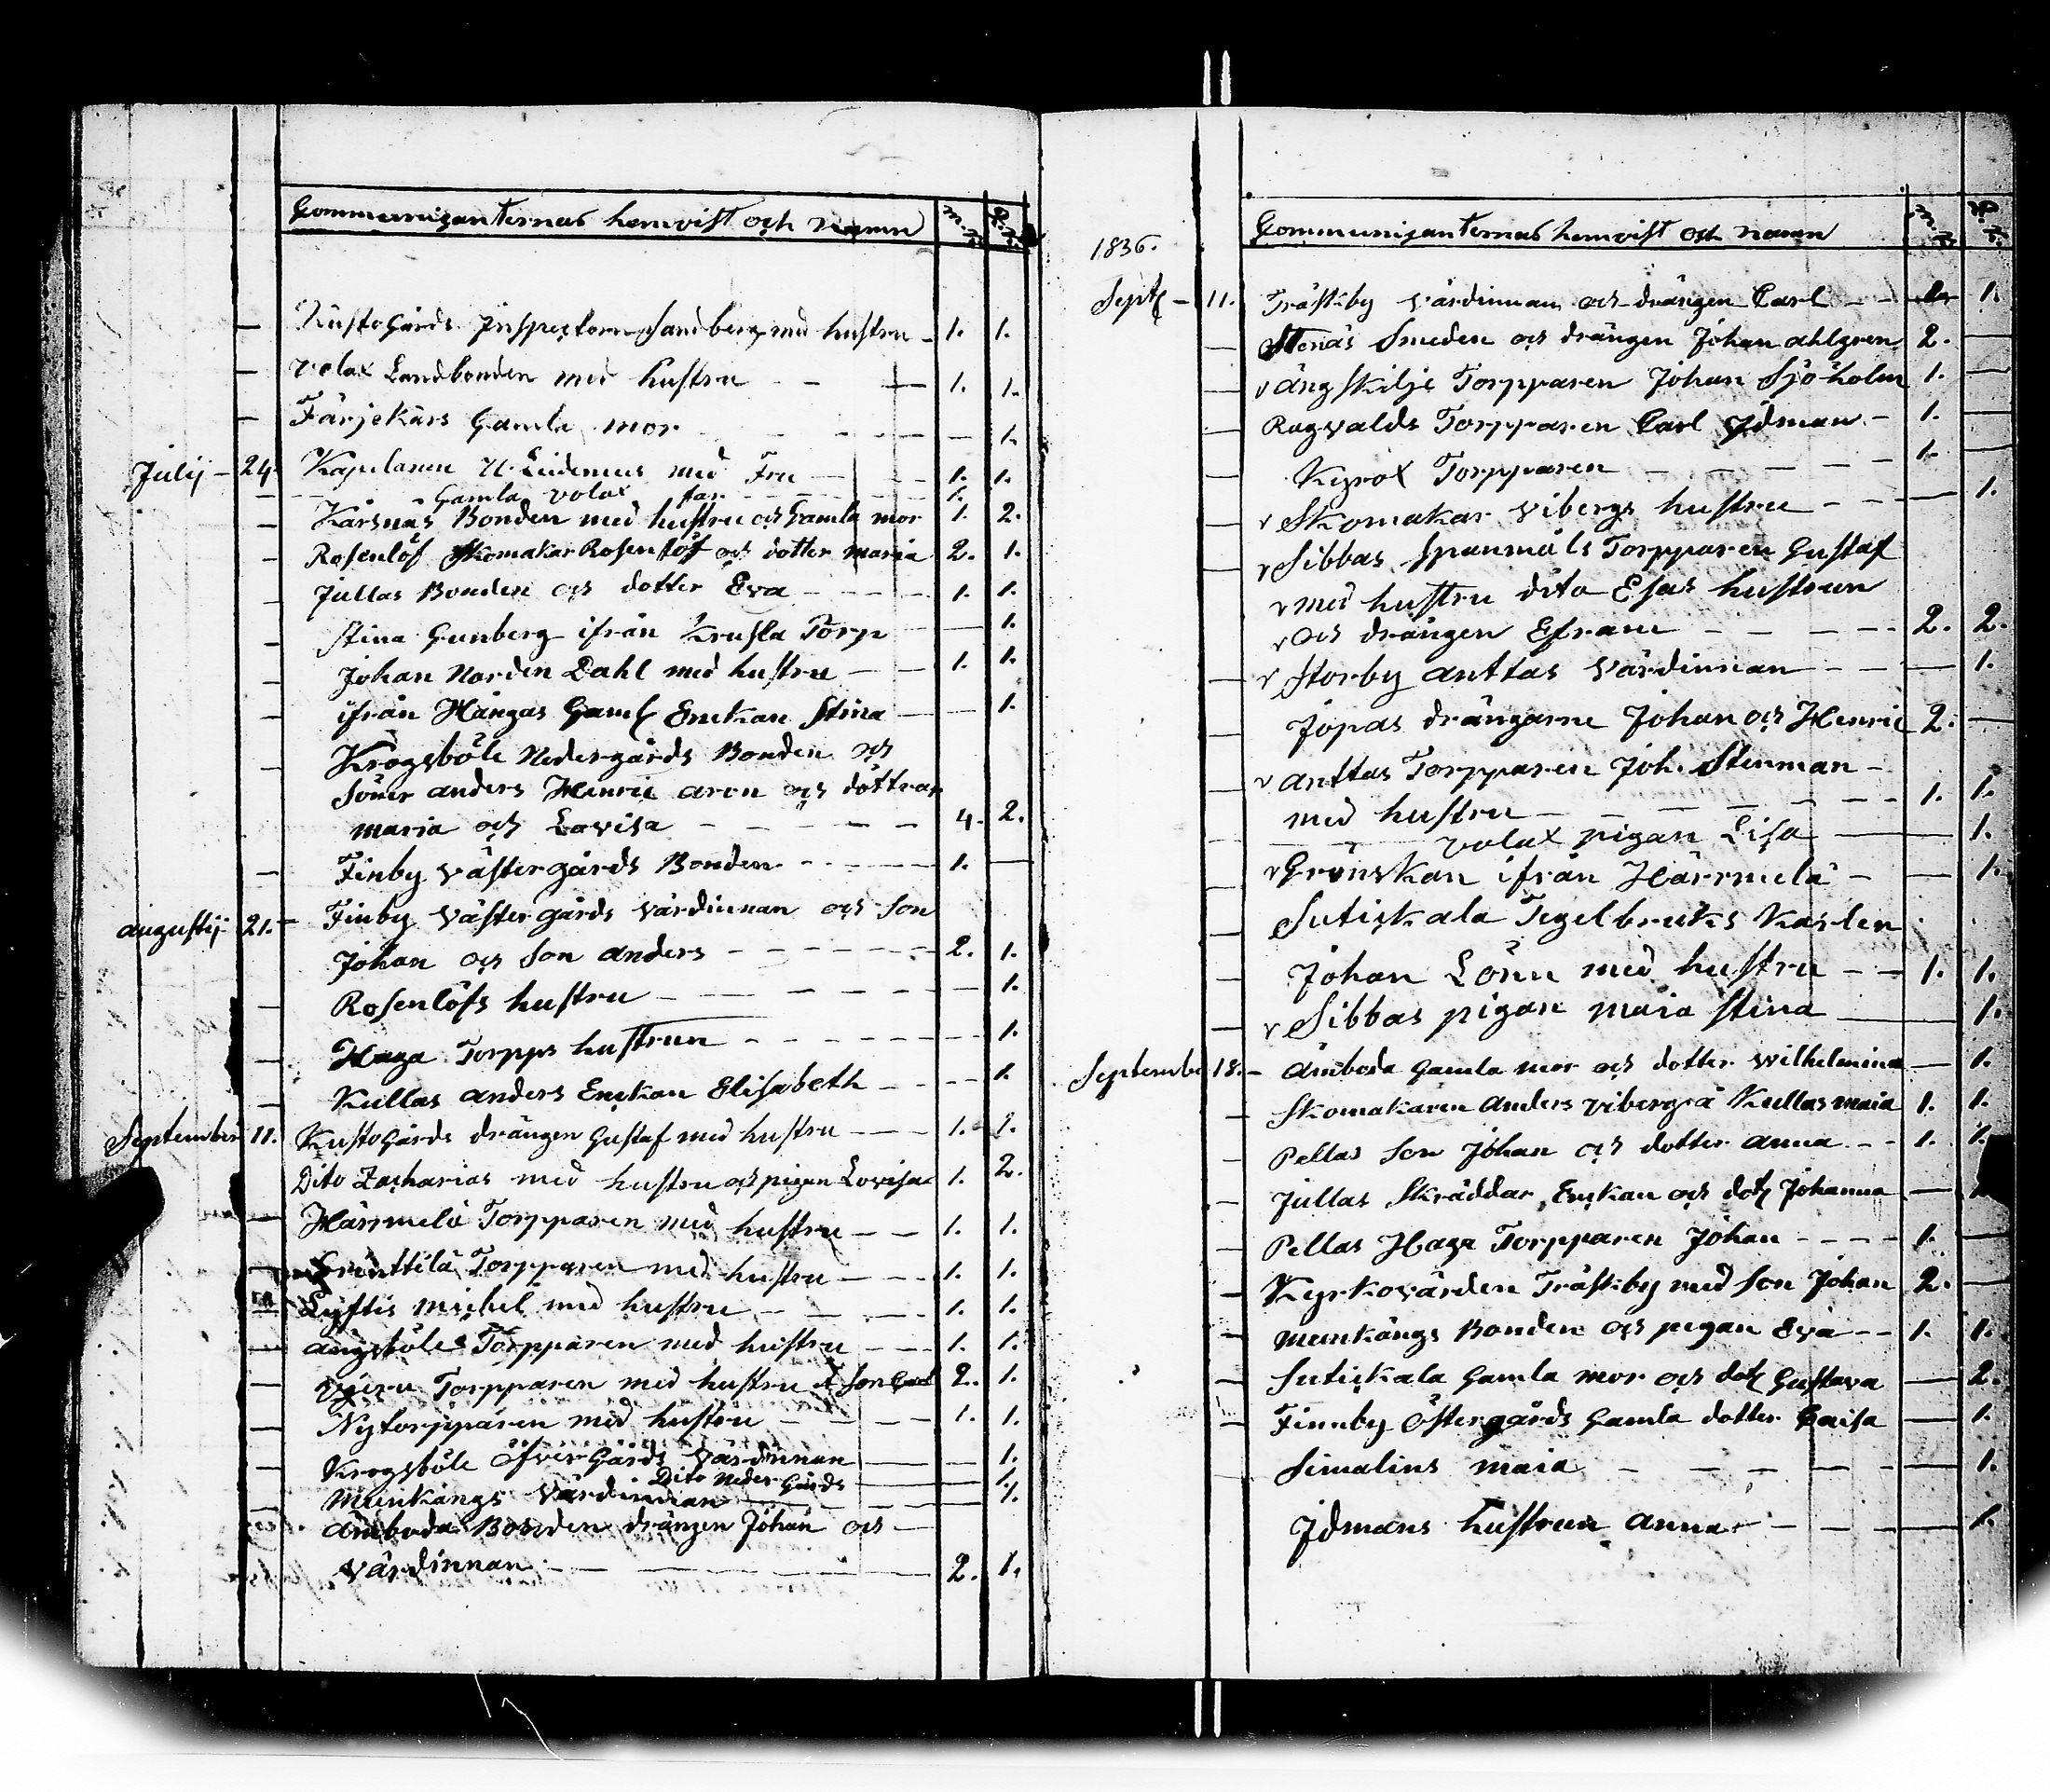 Communicanternas hemvist och namn m.k. q.k.
– Kustogårds Inspectorn Sandberg med hustru – 1. 1.
– Volax Landbonden med hustru – – 1. 1.
– Färjekärs Gamla mor – – – – 1.
Julij – 24. Kapelanen U. Lindenius med Fru – – 1. 1.
– – Gamla volax far – – – 1.
– Kärsnäs Bonden med hustru och Gamla mor 1. 2.
– Rosenlöf Skomakar Rosenlöf och dotter maria 2. 1.
– Jullas Bonden och dotter Eva – – – 1. 1.
– Stina Gunberg ifrån Krusla Torp – 1.
– Johan Norden Dahl med hustru – – 1. 1.
– ifrån Hängas Gaml Enckan Stina – – 1.
– Krogsböle Nedergårds Bonden och
Söner anders Henric aron och döttrar
maria och Lovisa – – – – – 4. 2.
– Finby västergårds Bonden – – – – 1. –
augustij 21. – Finby Västergårds värdinnan och Son
Johan och Son anders – – – – – 2. 1.
– Rosenlöfs hustru – – – – – 1.
– Haga Torpps hustrun – – – – – 1.
– Kullas anders Enckan Elisabeth – – – 1.
September 11. Kustogårds drängen Gustaf med hustru – – 1. 1.
Dito Zacharias med hustru och pigan Lovisa 1. 2.
– Härmelä Torpparen med hustru – – 1. 1.
– Grönttilä Torpparen med hustru – – – 1. 1.
– Lyftis michel med hustru – – – – 1. 1.
– ängsböles Torpparen med hustru – – – 1. 1.
– Torpparen med hustru & Son Carl 2. 1.
– Nytorpparen med hustru – – – – 1. 1.
– Krogsböle öfvergårds Värdinnan – – 1.
Dito Nedergårds – – 1.
– Munkängs Värdinnan – – – 1.
– ämboda Bonden drängen Johan och –
värdinnan – – – – – 2. 1.
1836.
Communicanternas hemvist och namn m.k. q.k.
Sept – 11. Träskby värdinnan och drängen Carl – – 1. 1.
– Stenäs Smeden och drängen Johan ahlgren 2. –
– v ängskilje Torpparen Johan Sjöholm 1. –
– Ragvalds Torpparen Carl Idman – 1. –
Kyrox Torpparen – – – – – 1. –
– v Skomakar vibergs hustru – – – 1.
– v Sibbas Spanmåls Torpparen Gustaf
v med hustru dito Esas hustrun
v och drängen Efraim – – – – – 2. 2.
– v Storby anttas värdinnan – – – 1.
– Jopas drängarne Johan och Henric 2. –
– v anttas Torpparen Joh. Stenman –
med hustru – – – – – – 1. 1.
– – volax pigan Lisa – – 1.
– v Grönskan ifrån Härrmelä – – 1.
– Sutickala Tegelbruks Karlen
– Johan Lönn med hustru – – 1. 1.
– v Sibbas pigan maia Stina – – 1.
September 18. – ämboda Gamla mor och dotter Wilhelmina – 1.
– Skomakaren Anders viberg å Kullas maia 1. 1.
– Pellas Son Johan och dotter anna – – 1. 1.
– Jullas Skräddar Enckan och dot Johanna –
– Pellas Haga Torpparen Johan – – – – 1. –
– Kyrkovärden Träskby med Son Johan 2. –
– Munkängs Bonden och pigan Eva – – 1. 1.
– Sutickala Gamla mor och dot Gustava – 2.
– Finnby Östergårds Gamla dotter Caisa – 1.
Simalins maia – – – – – – 1.
Idmans hustrun anna – – – – – 1.